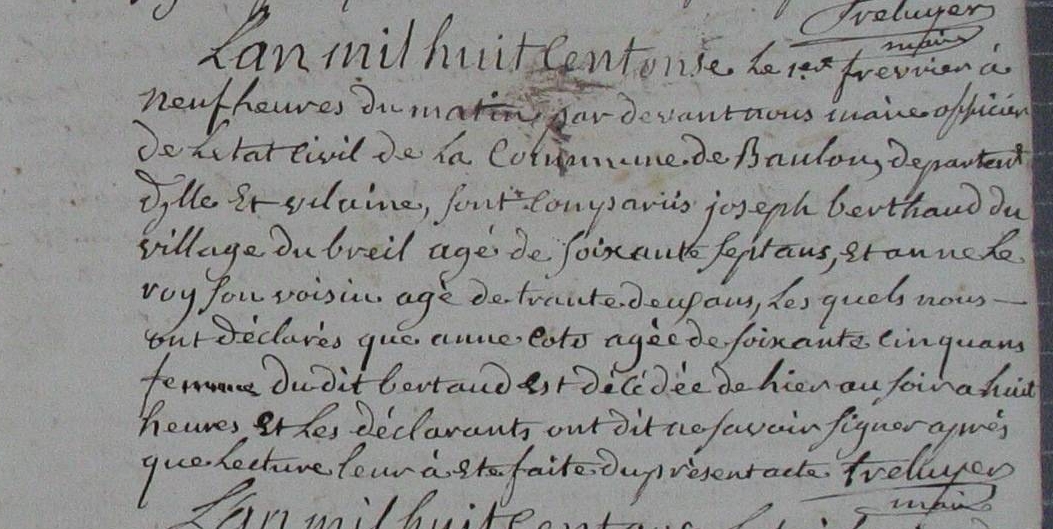 treluyer
maire
Lan mil huit Cent onse le 1er fevrier à
neuf heures du matin par devant nous maire officier
de Letat Civil de La Commune de Baulon, departemt
d'ylle Et vilaine, sont Comparüs joseph berthaud du
village du breil agé de soixante sept ans, Et anne Le
roy son voisin agé de trante deux ans, Les quels nous —
ont déclarés que anne Coto agèe de soixante cinq ans
femme du dit bertaud Est décédée de hier au soir a huit
heures Et Les déclarants ont dit ne savoir signer après
que Lecture leur à Ete faite du présent acte treluyer
maire
Lan mil huit Cent